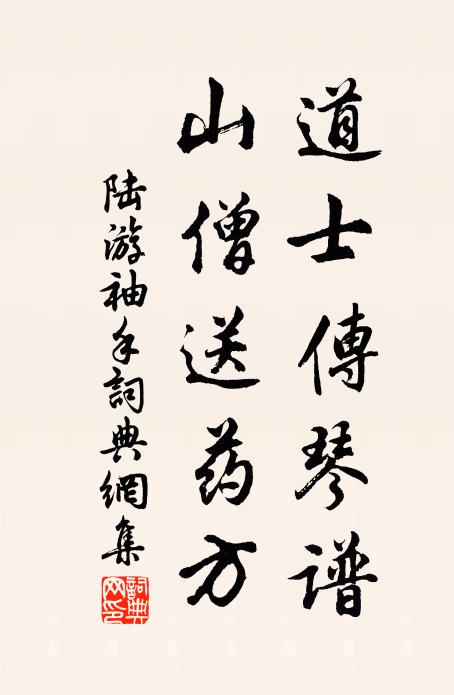 道士傳琴譜
山僧送药方
陆游袖手詞典網集
詞典网印